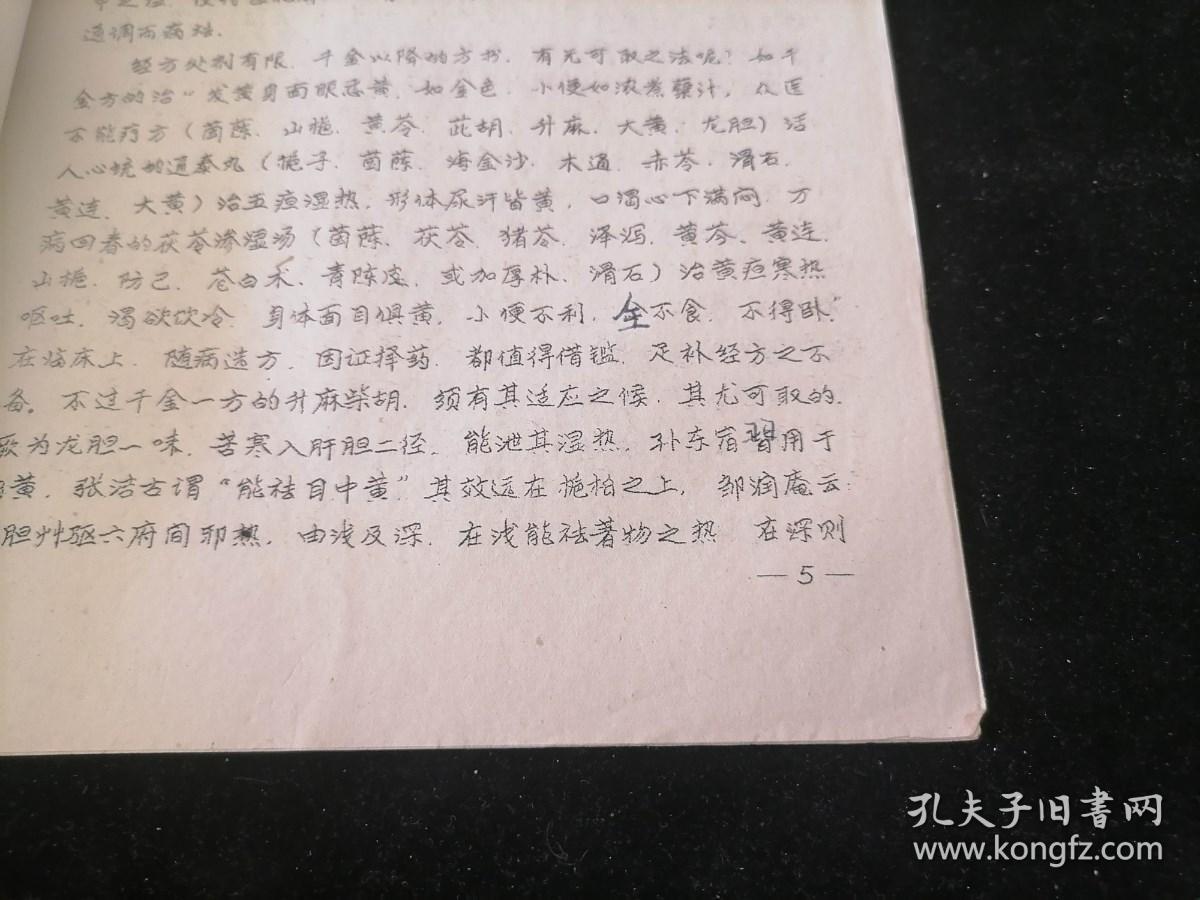 适调而病烛.
经方处剂有限. 千金以降的方书. 有无可取之法呢? 如千
金方的治“发黄身面眼悉黄. 如金色. 小便如浓煮蘗汁, 众医
不能疗方 (茵蔯. 山栀. 黄芩. 茈胡. 升麻. 大黄. 龙胆) 活
人心统的通泰丸 (栀子. 茵蔯. 海金沙. 木通. 赤苓. 滑石.
黄连. 大黄) 治五疸湿热. 形体尿汗皆黄, 口渴心下满闷. 万
病回春的茯苓渗湿汤 (茵蔯. 茯苓. 猪苓. 泽泻. 黄芩. 黄连.
山栀. 防己. 苍白术. 青陈皮. 或加厚朴. 滑石) 治黄疸寒热
呕吐. 渴欲饮冷. 身体面目俱黄. 小便不利. 全不食. 不得卧.”
在临床上. 随病选方. 因证择药. 都值得借鑑. 足补经方之不
备。不过千金一方的升麻柴胡. 须有其适应之候. 其尤可取的.
厥为龙胆一味. 苦寒入肝胆二径. 能泄其湿热. 孙东宿習用于
黄. 张洁古谓“能祛目中黄”其效远在栀柏之上. 邹润庵云:
胆艸驱六府间邪热. 由浅及深. 在浅能祛著物之热 在深则
—5—
孔夫子旧書网
www.kongfz.com